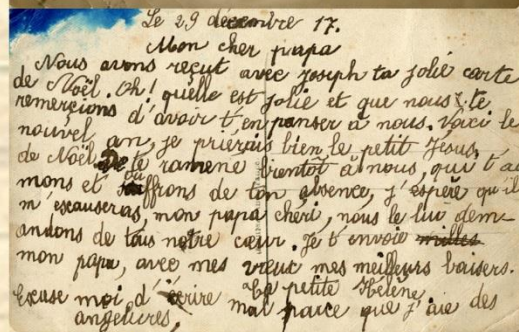 Le 29 décembre 17.
Mon cher papa
Nous avons reçut avec Joseph ta jolie carte
de Noël. Oh! qu'elle est jolie et que nous te
remerçions d'avoir t'en panser à nous. Voici le
nouvel an, je prierais bien le petit Jésus,
de Noël de te ramené bientôt à nous, qui t'ai
mons et souffrons de ton absence, j'espère qu'il
m'éscauseras, mon papa chéri, nous le lui dem-
andons de tous notre cœur. Je t'envoie milles
mon papa, avec mes vœut mes meilleurs baisers.
La petite Hélène
Excuse moi d'écrire mal parce que j'aie des
angelures,